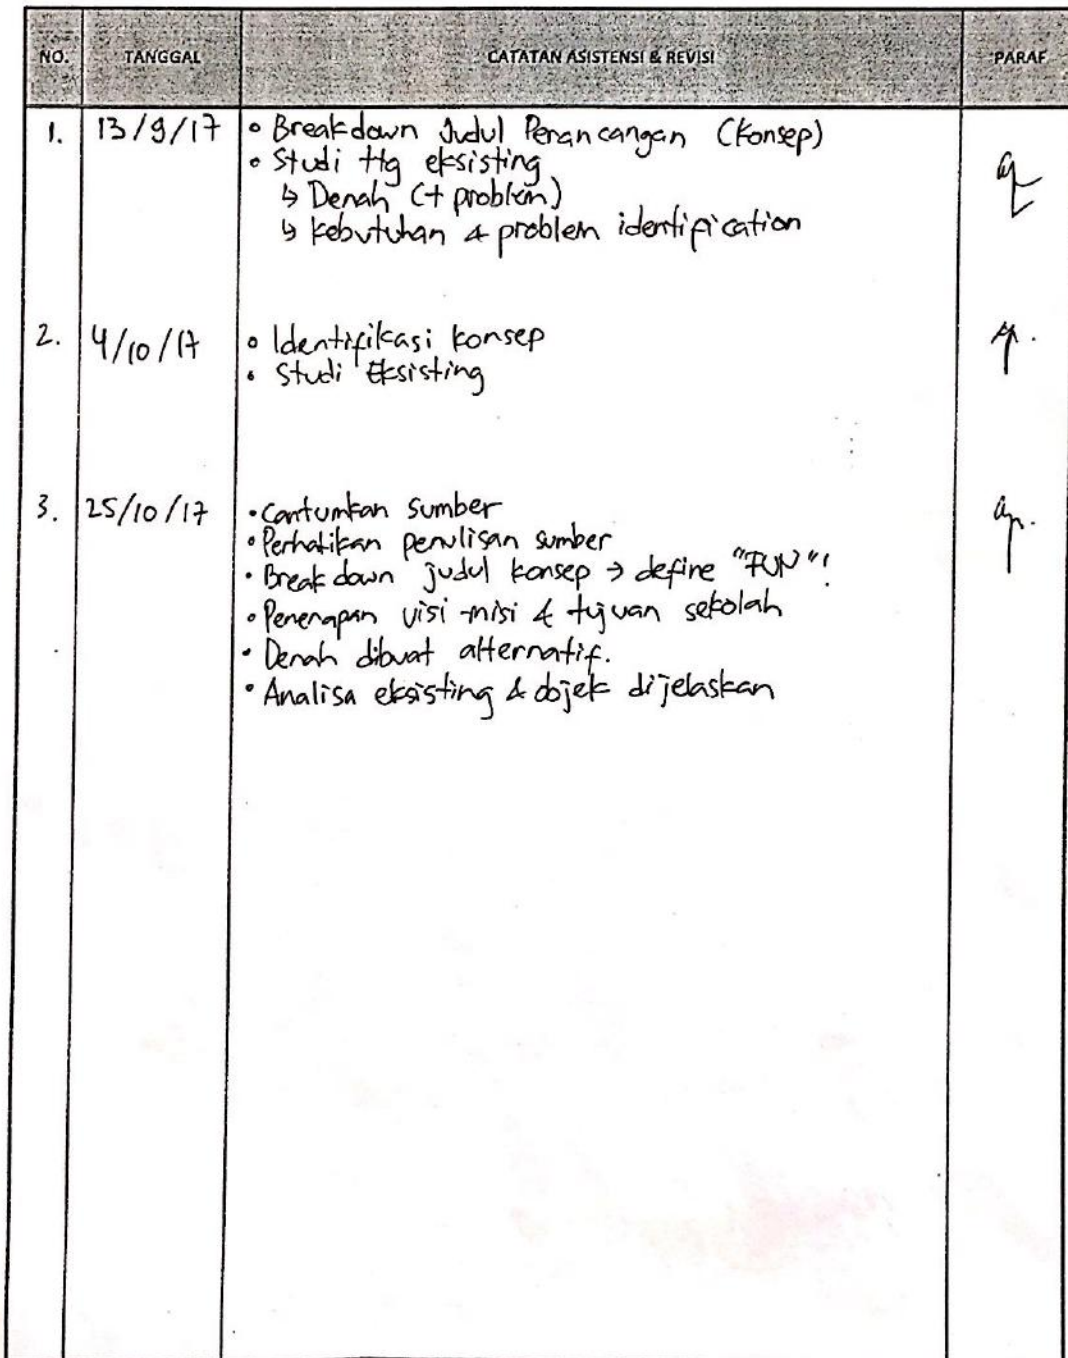 NO. TANGGAL CATATAN ASISTENSI & REVISI PARAF
1. 13/9/17 • Breakdown Judul Perancangan (Konsep)
• Studi ttg eksisting
↳ Denah (+ problem)
↳ kebutuhan & problem identification
2. 4/10/17 • Identifikasi konsep
• Studi Eksisting
3. 25/10/17 • Cantumkan sumber
• Perhatikan penulisan sumber
• Breakdown judul konsep → define "FUN"!
• Penerapan visi-misi & tujuan sekolah
• Denah dibuat alternatif.
• Analisa eksisting & objek dijelaskan